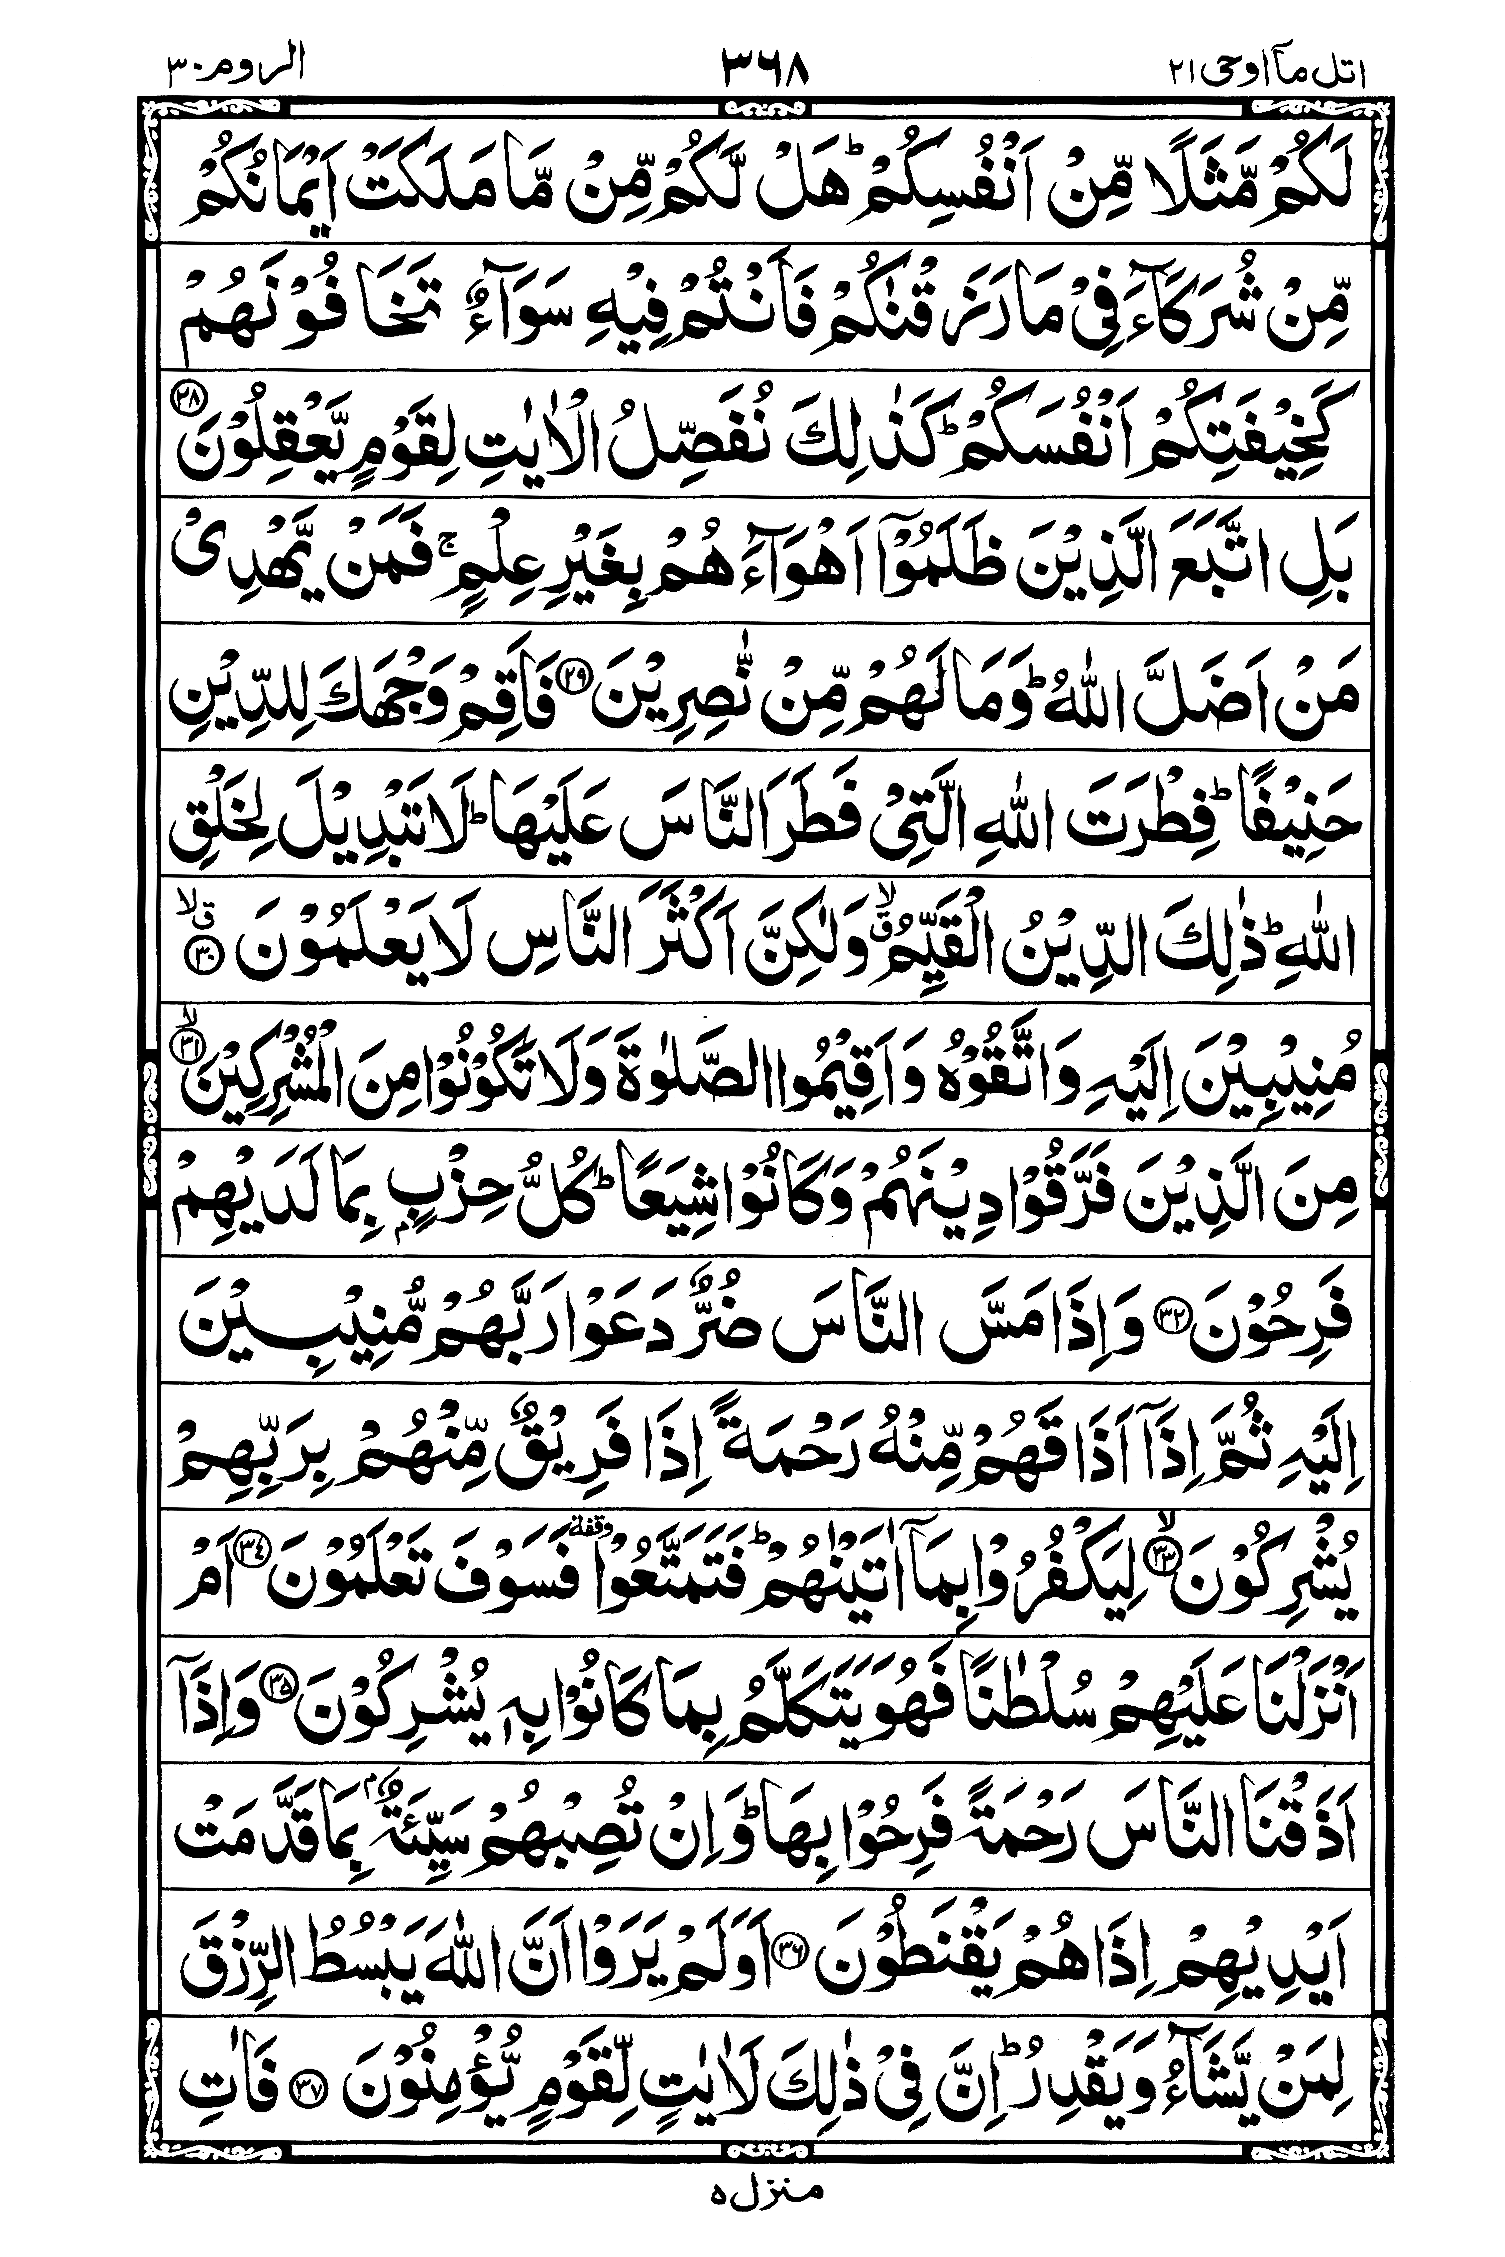 اتل مآ اوحی ۲۱
۳۶۸
الروم ۳۰
لَكُمْ مَّثَلًا مِّنْ اَنْفُسِكُمْ ؕ هَلْ لَّكُمْ مِّنْ مَّا مَلَكَتْ اَيْمَانُكُمْ
مِّنْ شُرَكَآءَ فِیْ مَا رَزَقْنٰكُمْ فَاَنْتُمْ فِيْهِ سَوَآءٌ تَخَافُوْنَهُمْ
كَخِيْفَتِكُمْ اَنْفُسَكُمْ ؕ كَذٰلِكَ نُفَصِّلُ الْاٰيٰتِ لِقَوْمٍ يَّعْقِلُوْنَ ۲۸
بَلِ اتَّبَعَ الَّذِيْنَ ظَلَمُوْۤا اَهْوَآءَهُمْ بِغَيْرِ عِلْمٍ ۚ فَمَنْ يَّهْدِیْ
مَنْ اَضَلَّ اللّٰهُ ؕ وَمَا لَهُمْ مِّنْ نّٰصِرِيْنَ ۲۹ فَاَقِمْ وَجْهَكَ لِلدِّيْنِ
حَنِيْفًا ؕ فِطْرَتَ اللّٰهِ الَّتِیْ فَطَرَ النَّاسَ عَلَيْهَا ؕ لَا تَبْدِيْلَ لِخَلْقِ
اللّٰهِ ؕ ذٰلِكَ الدِّيْنُ الْقَيِّمُ ۙق وَلٰكِنَّ اَكْثَرَ النَّاسِ لَا يَعْلَمُوْنَ ۳۰ ق لا
مُنِيْبِيْنَ اِلَيْهِ وَاتَّقُوْهُ وَاَقِيْمُوا الصَّلٰوةَ وَلَا تَكُوْنُوْا مِنَ الْمُشْرِكِيْنَ ۳۱ لا
مِنَ الَّذِيْنَ فَرَّقُوْا دِيْنَهُمْ وَكَانُوْا شِيَعًا ؕ كُلُّ حِزْبٍۭ بِمَا لَدَيْهِمْ
فَرِحُوْنَ ۳۲ وَاِذَا مَسَّ النَّاسَ ضُرٌّ دَعَوْا رَبَّهُمْ مُّنِيْبِيْنَ
اِلَيْهِ ثُمَّ اِذَاۤ اَذَاقَهُمْ مِّنْهُ رَحْمَةً اِذَا فَرِيْقٌ مِّنْهُمْ بِرَبِّهِمْ
يُشْرِكُوْنَ ۳۳ لا لِيَكْفُرُوْا بِمَاۤ اٰتَيْنٰهُمْ ؕ فَتَمَتَّعُوْا وقفة فَسَوْفَ تَعْلَمُوْنَ ۳۴ اَمْ
اَنْزَلْنَا عَلَيْهِمْ سُلْطٰنًا فَهُوَ يَتَكَلَّمُ بِمَا كَانُوْا بِهٖ يُشْرِكُوْنَ ۳۵ وَاِذَاۤ
اَذَقْنَا النَّاسَ رَحْمَةً فَرِحُوْا بِهَا ؕ وَاِنْ تُصِبْهُمْ سَيِّئَةٌۢ بِمَا قَدَّمَتْ
اَيْدِيْهِمْ اِذَا هُمْ يَقْنَطُوْنَ ۳۶ اَوَلَمْ يَرَوْا اَنَّ اللّٰهَ يَبْسُطُ الرِّزْقَ
لِمَنْ يَّشَآءُ وَيَقْدِرُ ؕ اِنَّ فِیْ ذٰلِكَ لَاٰيٰتٍ لِّقَوْمٍ يُّؤْمِنُوْنَ ۳۷ فَاٰتِ
منزل ۵